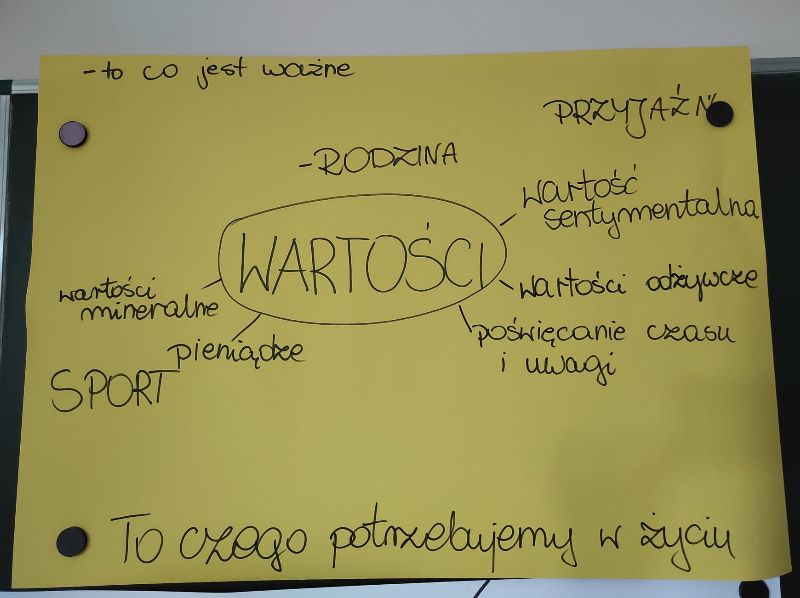 -to co jest ważne
PRZYJAŹŃ
-RODZINA
wartość
sentymentalna
WARTOŚCI
wartości odżywcze
wartości
mineralne
poświęcanie czasu
i uwagi
pieniądze
SPORT
To czego potrzebujemy w życiu